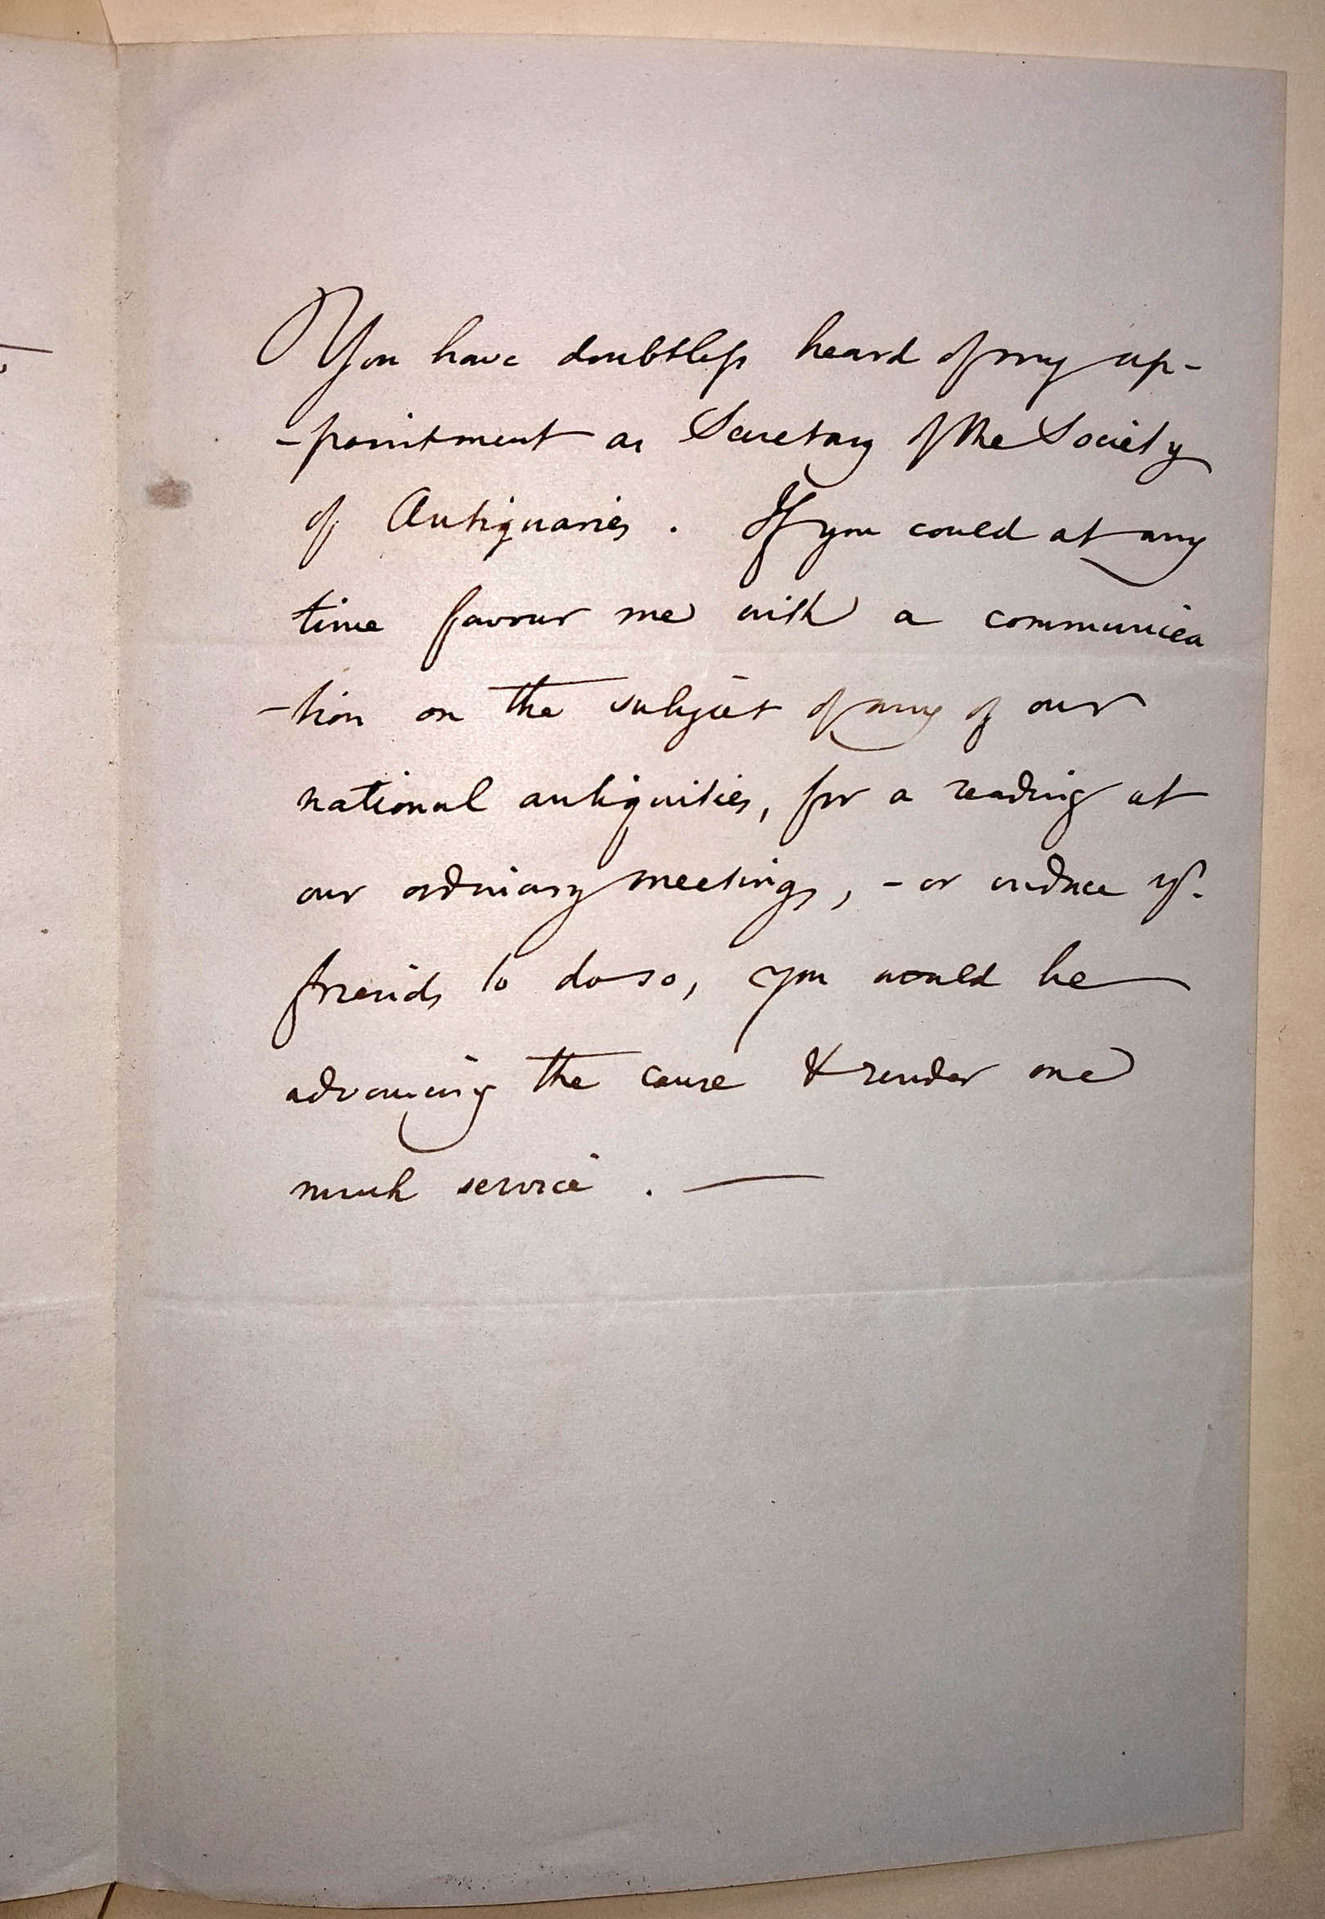 You have doubtless heard of my ap-
-pointment as Secretary of the Society
of Antiquaries. If you could at any
time favour me with a communica
-tion on the subject of any of our
national antiquities, for a reading at
our ordinary meetings, - or induce yr.
friends to do so, you would be
advancing the cause & render me
much service. —